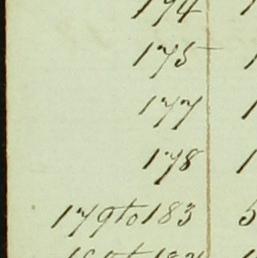 174
175
177
178
179to183 5